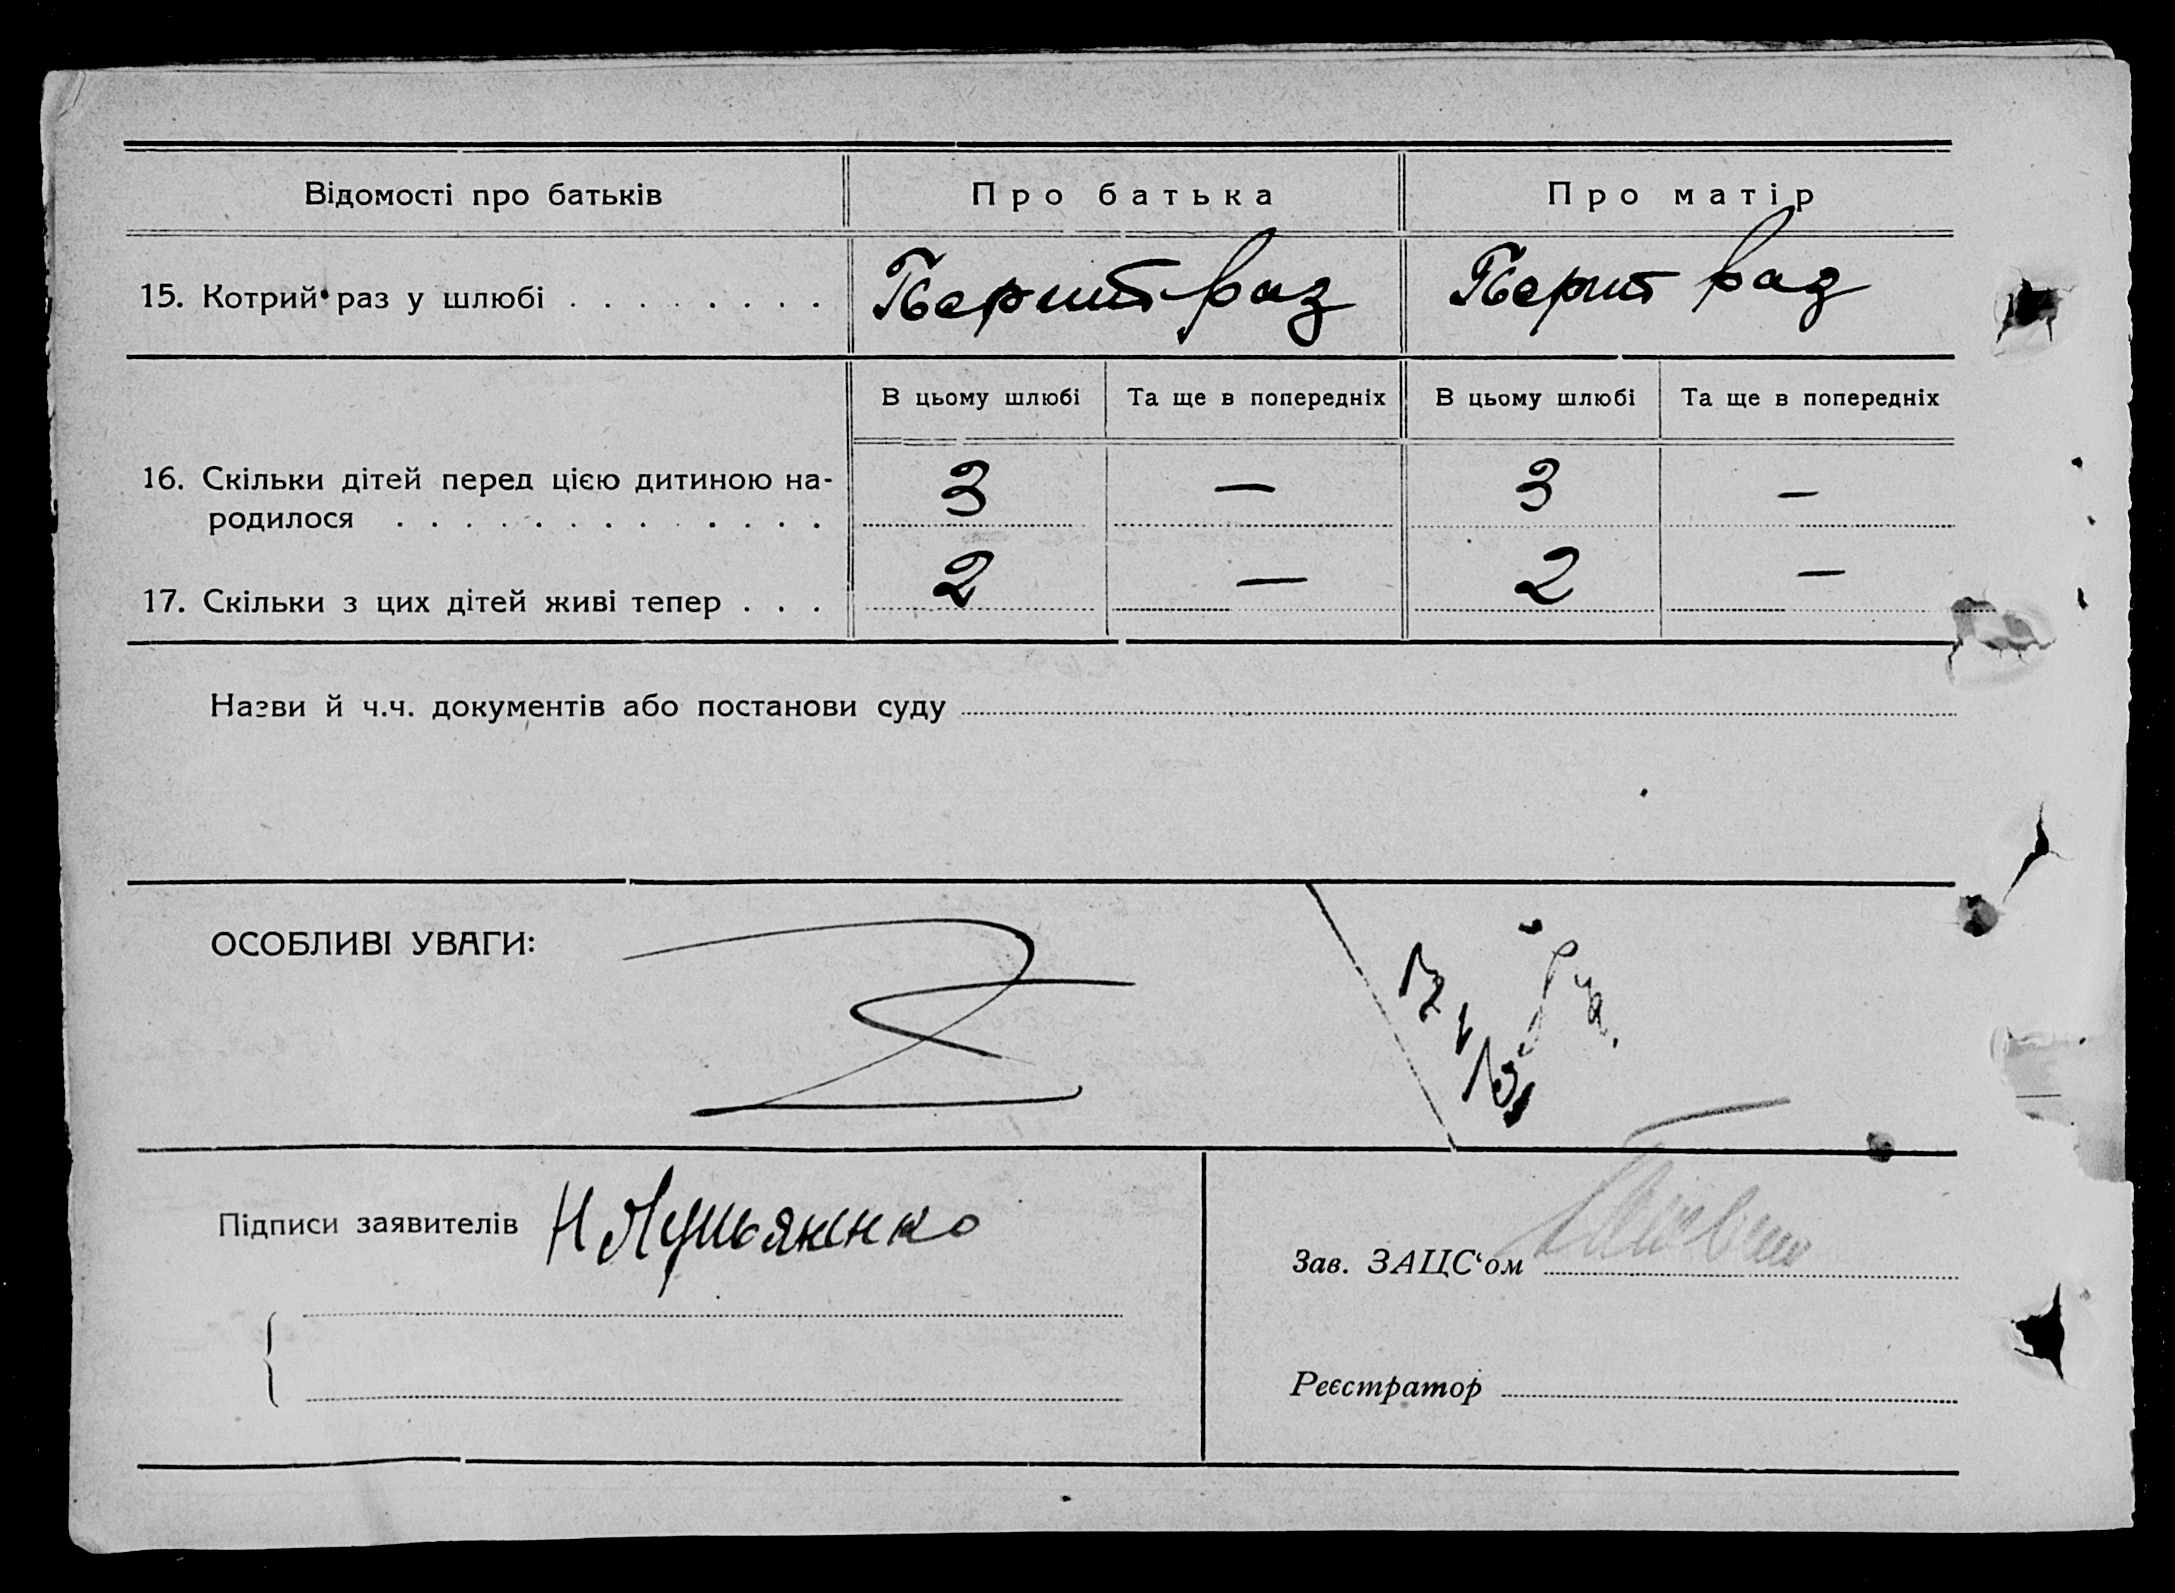 Відомості про батьків
Про батька
Про матір
15. Котрий раз у шлюбі . . . . . . . .
раз
раз
В цьому шлюбі
Та ще в попередніх
В цьому шлюбі
Та ще в попередніх
16. Скільки дітей перед цією дитиною на-
родилося . . . . . . . . . . . . .
3 — 3 —
17. Скільки з цих дітей живі тепер . . .
2 — 2 —
Назви й ч.ч. документів або постанови суду
ОСОБЛИВІ УВАГИ:
Підписи заявителів
Н
Зав. ЗАЦС‘ом
Реєстратор